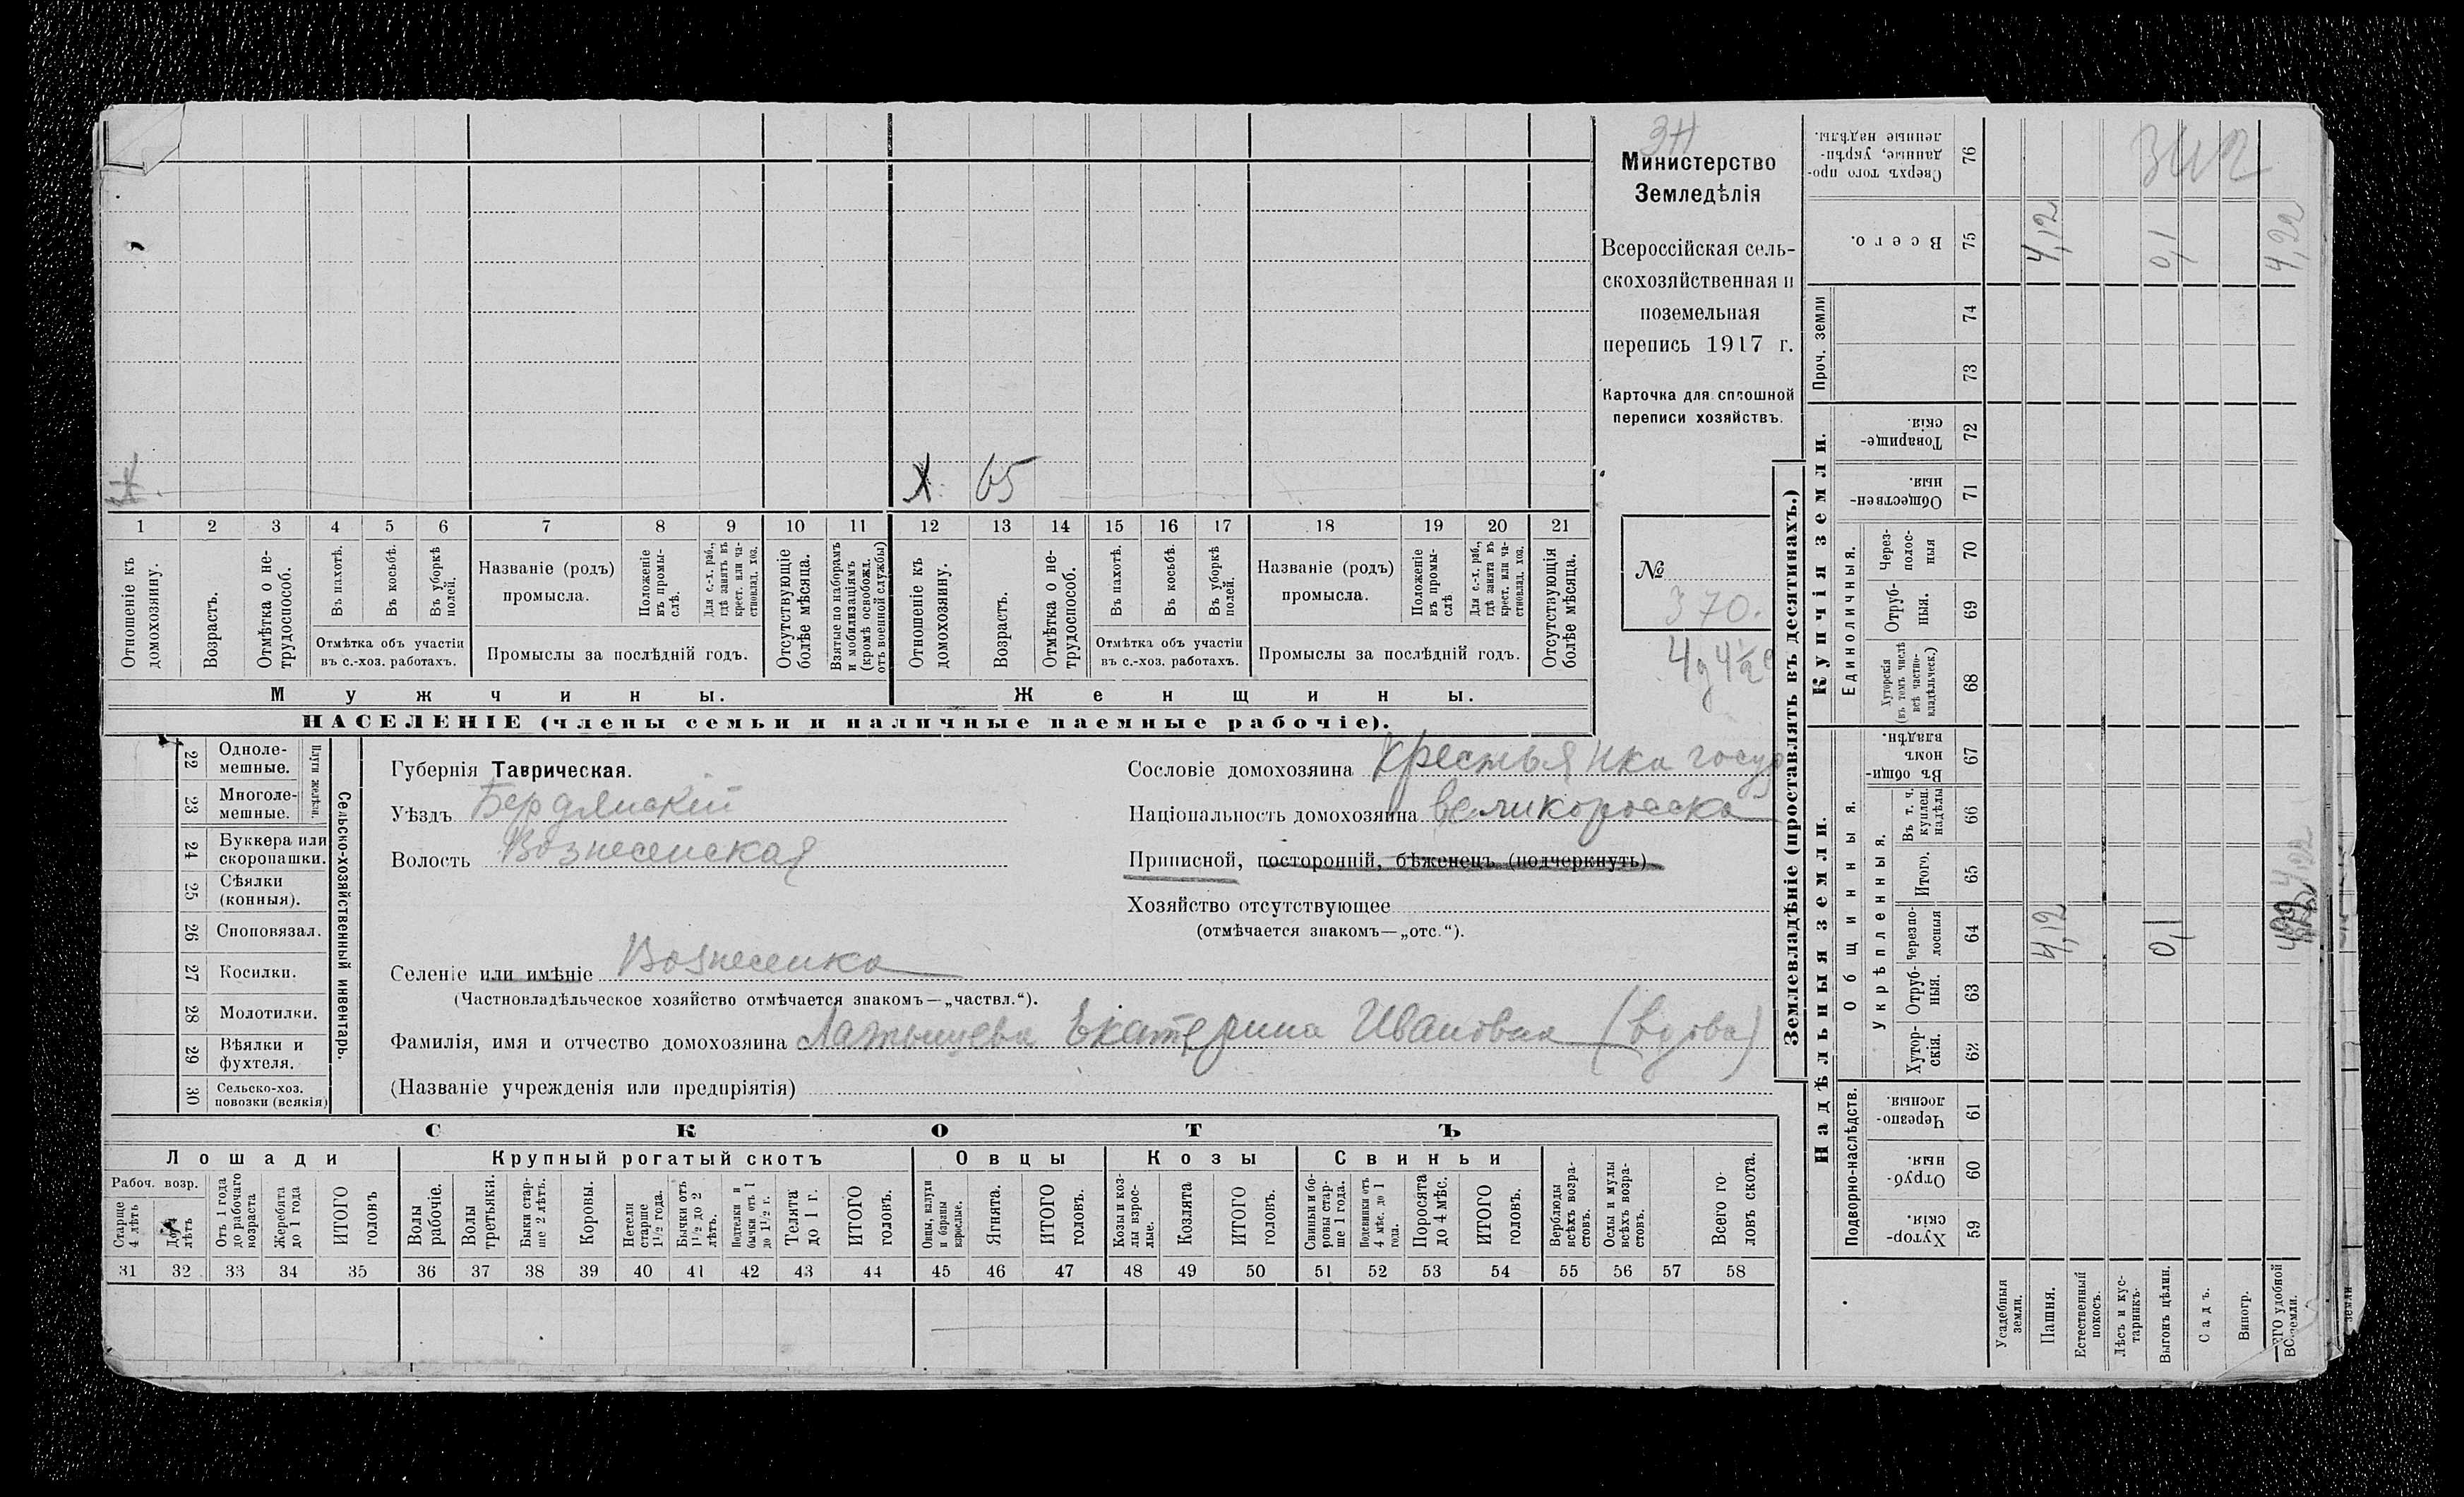 Министерство
Земледѣлія
Всероссійская сель-
скохозяйственная и
поземельная
перепись 1917 г.
Карточка для сплошной
переписи хозяйствъ.
№
370.
4д 4½ с
Х 65
1 2 3 4 5 6 7 8 9 10 11 12 13 14 15 16 17 18 19 20 21
Отношеніе къ домохозяину.
Возрастъ.
Отмѣтка о не-трудоспособ.
Въ пахотѣ.
Въ косьбѣ.
Въ уборкѣ полей.
Отмѣтка объ участіи
въ с.-хоз. работахъ.
Названіе (родъ)
промысла.
Положеніе въ промы-слѣ.
Для с.-х. раб., гдѣ занятъ въ крест. или ча-стновлад. хоз.
Промыслы за послѣдній годъ.
Отсутствующіе болѣе мѣсяца.
Взятые по наборамъ и мобилизаціямъ (кромѣ освобожд. отъ военной службы)
Отношеніе къ домохозяину.
Возрастъ.
Отмѣтка о не-трудоспособ.
Въ пахотѣ.
Въ косьбѣ.
Въ уборкѣ полей.
Отмѣтка объ участіи
въ с.-хоз. работахъ.
Названіе (родъ)
промысла.
Положеніе въ промы-слѣ
Для с.-х. раб., гдѣ занята въ крест. или ча-стновлад. хоз.
Промыслы за послѣдній годъ.
Отсутствующія болѣе мѣсяца.
Мужчины.
Женщины.
НАСЕЛЕНІЕ (члены семьи и наличные наемные рабочіе).
22 Одноле-мешные.
23 Многоле-мешные.
Плуги желѣзн.
24 Буккера или скоропашки.
25 Сѣялки (конныя).
26 Сноповязал.
27 Косилки.
28 Молотилки.
29 Вѣялки и фухтеля.
30 Сельско-хоз. повозки (всякія)
Сельско-хозяйственный инвентарь.
Губернія Таврическая.
Уѣздъ Бердянскій
Волость Вознесенская
Селеніе или имѣніе Вознесенка
(Частновладѣльческое хозяйство отмѣчается знакомъ—„частвл.“).
Фамилія, имя и отчество домохозяина Латышева Екатерина Ивановна (вдова)
(Названіе учрежденія или предпріятія)
Сословіе домохозяина крестьянка госуд
Національность домохозяина великоросска
Приписной, посторонній, бѣженецъ (подчеркнуть)
Хозяйство отсутствующее
(отмѣчается знакомъ—„отс.“).
СКОТЪ
Лошади
Крупный рогатый скотъ
Овцы
Козы
Свиньи
Рабоч. возр.
Старще 4 лѣтъ
До 4 лѣтъ
Отъ 1 года до рабочаго возраста
Жеребята до 1 года
ИТОГО головъ
Волы рабочіе.
Волы третьяки.
Быки стар-ше 2 лѣтъ.
Коровы.
Нетели старше 1½ года.
Бычки отъ 1½ до 2 лѣтъ.
Подтелки и бычки отъ 1 до 1½ г.
Телята до 1 г.
ИТОГО головъ.
Овцы, валухи и бараны взрослые.
Ягнята.
ИТОГО головъ.
Козы и коз-лы взрос-лые.
Козлята
ИТОГО головъ.
Свиньи и бо-ровы стар-ше 1 года.
Подсвинки отъ 4 мѣс. до 1 года.
Поросята до 4 мѣс.
ИТОГО головъ.
Верблюды всѣхъ возра-стовъ.
Ослы и мулы всѣхъ возра-стовъ.
Всего го-ловъ скота.
31 32 33 34 35 36 37 38 39 40 41 42 43 44 45 46 47 48 49 50 51 52 53 54 55 56 57 58
Землевладѣніе (проставлять въ десятинахъ.)
Надѣльныя земли.
Купчія земли.
Проч. земли
Подворно-наслѣдств.
Общинныя.
Укрѣпленныя.
Единоличныя.
Сверхъ того про-данные, укрѣп-ленные надѣлы. 76
342
Всего. 75 4,12 0,1 4,22
74
73
Товарище-скія. 72
Обществен-ныя. 71
Через-полос-ныя 70
Отруб-ныя. 69
Хуторскія (въ томъ числѣ всѣ частно-владѣльческ.) 68
Въ общин-номъ владѣн. 67
Въ т. ч. куплен. надѣлы 66
Итого. 65
Черезпо-лосныя 64 4,12 0,1
Отруб-ныя. 63
Хутор-скія. 62
Черезпо-лосныя. 61
Отруб-ныя. 60
Хутор-скія. 59
Усадебныя земли.
Пашня.
Естественный покосъ.
Лѣсъ и кус-тарникъ.
Выгонъ цѣлин.
Садъ.
Виногр.
ВСЕГО удобной земли.
земли